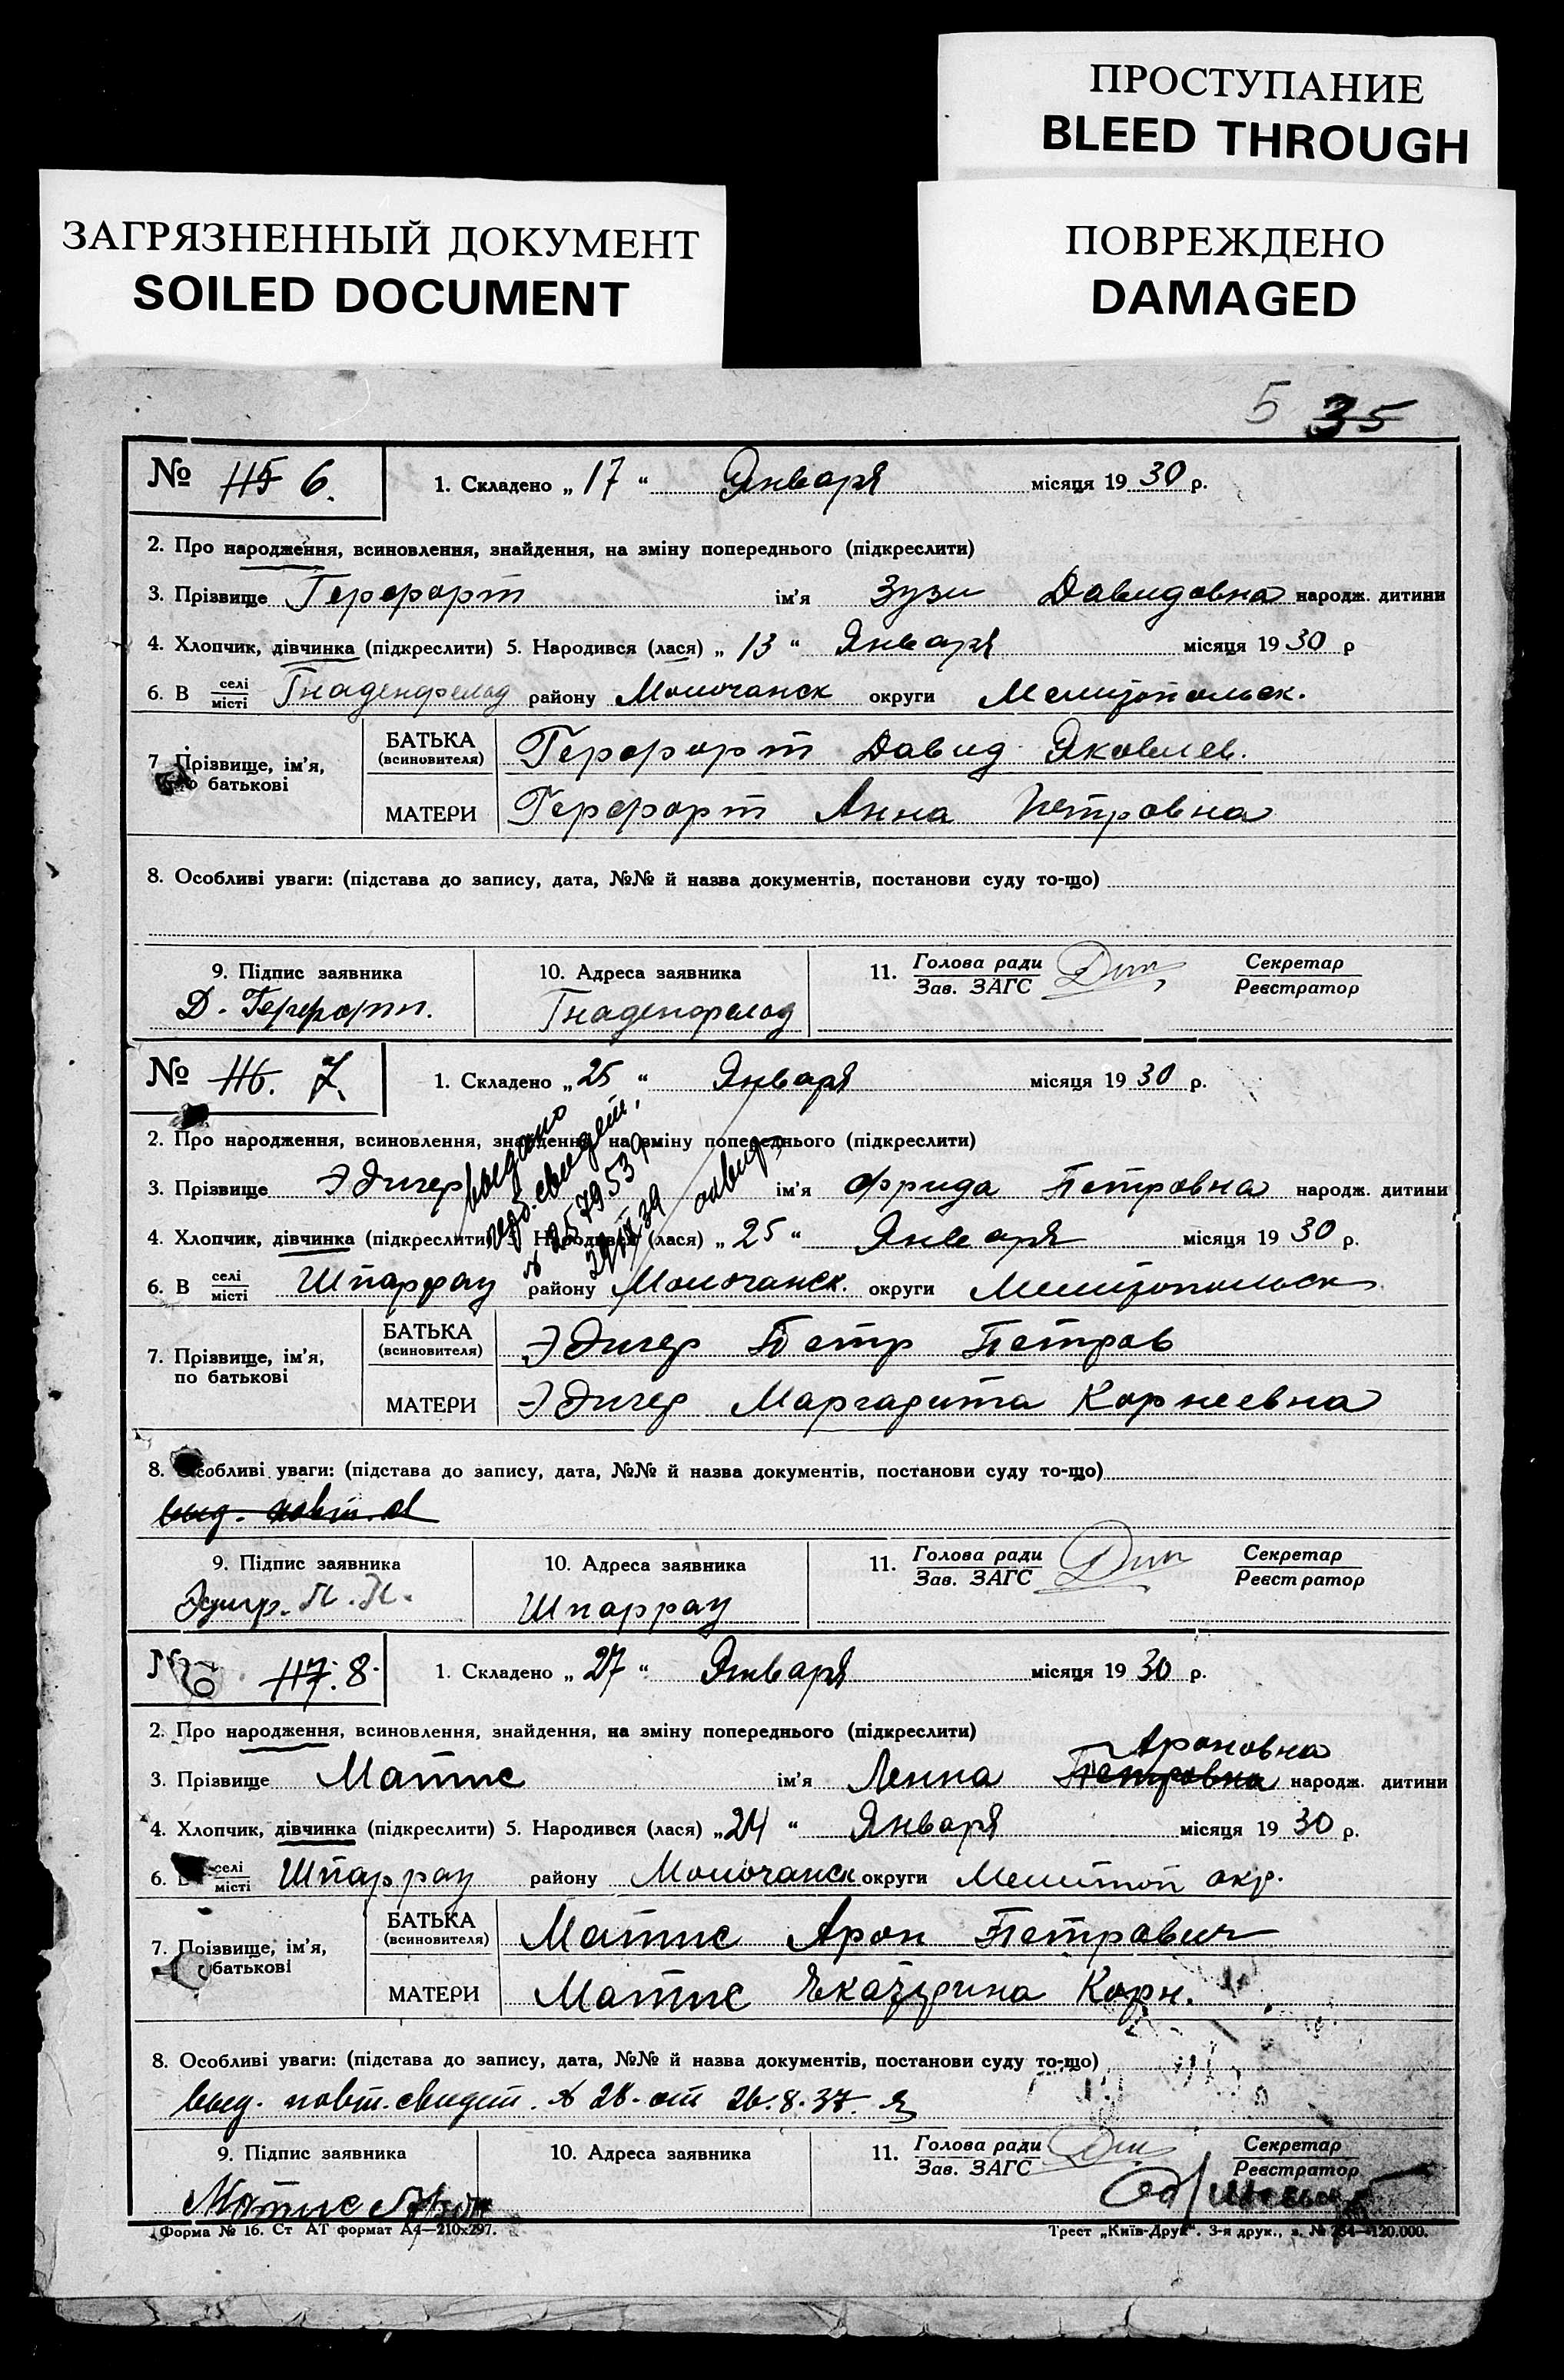 ПРОСТУПАНИЕ
BLEED THROUGH
ЗАГРЯЗНЕННЫЙ ДОКУМЕНТ
SOILED DOCUMENT
ПОВРЕЖДЕНО
DAMAGED
5 35
№ 115 6. 1. Складено „ 17 “ Января місяця 1930 р.
2. Про народження, всиновлення, знайдення, на зміну попереднього (підкреслити)
3. Прізвище Герфорт ім'я Зузи Давидовна народж. дитини
4. Хлопчик, дівчинка (підкреслити) 5. Народився (лася) „ 13 “ Января місяця 1930 р
6. В селі місті Гнаденфельд району Молочанск округи Мелитопольск.
7 Прізвище, ім'я, по батькові
БАТЬКА (всиновителя) Герфорт Давид Яковлев.
МАТЕРИ Герфорт Анна Петровна
8. Особливі уваги: (підстава до запису, дата, №№ й назва документів, постанови суду то-що)
9. Підпис заявника 10. Адреса заявника 11. Голова ради Зав. ЗАГС Секретар Реєстратор
Д. Герфорт. Гнаденфельд
№ 116. 7. 1. Складено „ 25 “ Января місяця 1930 р.
2. Про народження, всиновлення, знайдення, на зміну попереднього (підкреслити)
выдано
свидет.
3. Прізвище Эдигер ім'я Фрида Петровна народж. дитини
4. Хлопчик, дівчинка (підкреслити) 5. Народився (лася) „ 25 “ Января місяця 1930 р.
6. В селі місті Шпаррау району Молочанск. округи Мелитопольск
7. Прізвище, ім'я, по батькові
БАТЬКА (всиновителя) Эдигер Петр Петров
МАТЕРИ Эдигер Маргарита Корнеевна
8. Особливі уваги: (підстава до запису, дата, №№ й назва документів, постанови суду то-що)
выд. повт.
9. Підпис заявника 10. Адреса заявника 11. Голова ради Зав. ЗАГС Секретар Реєстратор
Шпаррау
№ 117. 8. 1. Складено „ 27 “ Января місяця 1930 р.
2. Про народження, всиновлення, знайдення, на зміну попереднього (підкреслити)
Ароновна
3. Прізвище Матис ім'я Ленна Петровна народж. дитини
4. Хлопчик, дівчинка (підкреслити) 5. Народився (лася) „ 24 “ Января місяця 1930 р.
6. В селі місті Шпаррау району Молочанск округи Мелитоп окр.
7. Прізвище, ім'я, по батькові
БАТЬКА (всиновителя) Матис Арон Петрович
МАТЕРИ Матис Екатерина Корн.
8. Особливі уваги: (підстава до запису, дата, №№ й назва документів, постанови суду то-що)
выд. повт. свидет. № 28. от 26.8.37.
9. Підпис заявника 10. Адреса заявника 11. Голова ради Зав. ЗАГС Секретар Реєстратор
Матис
Форма № 16. Ст АТ формат А4—210х297. Трест „Київ-Друк“. 3-я друк., з. № 284—120.000.